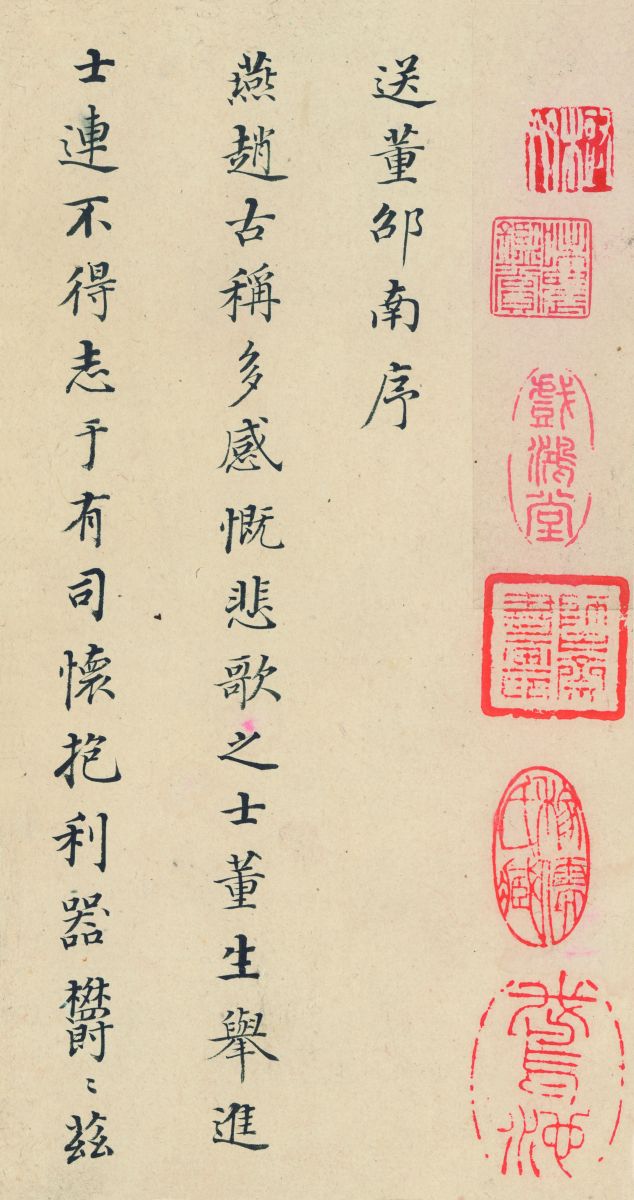 戲鴻堂
鵞池
送董邵南序
燕趙古稱多感慨悲歌之士董生舉進
士連不得志于有司懷抱利器鬱〻茲